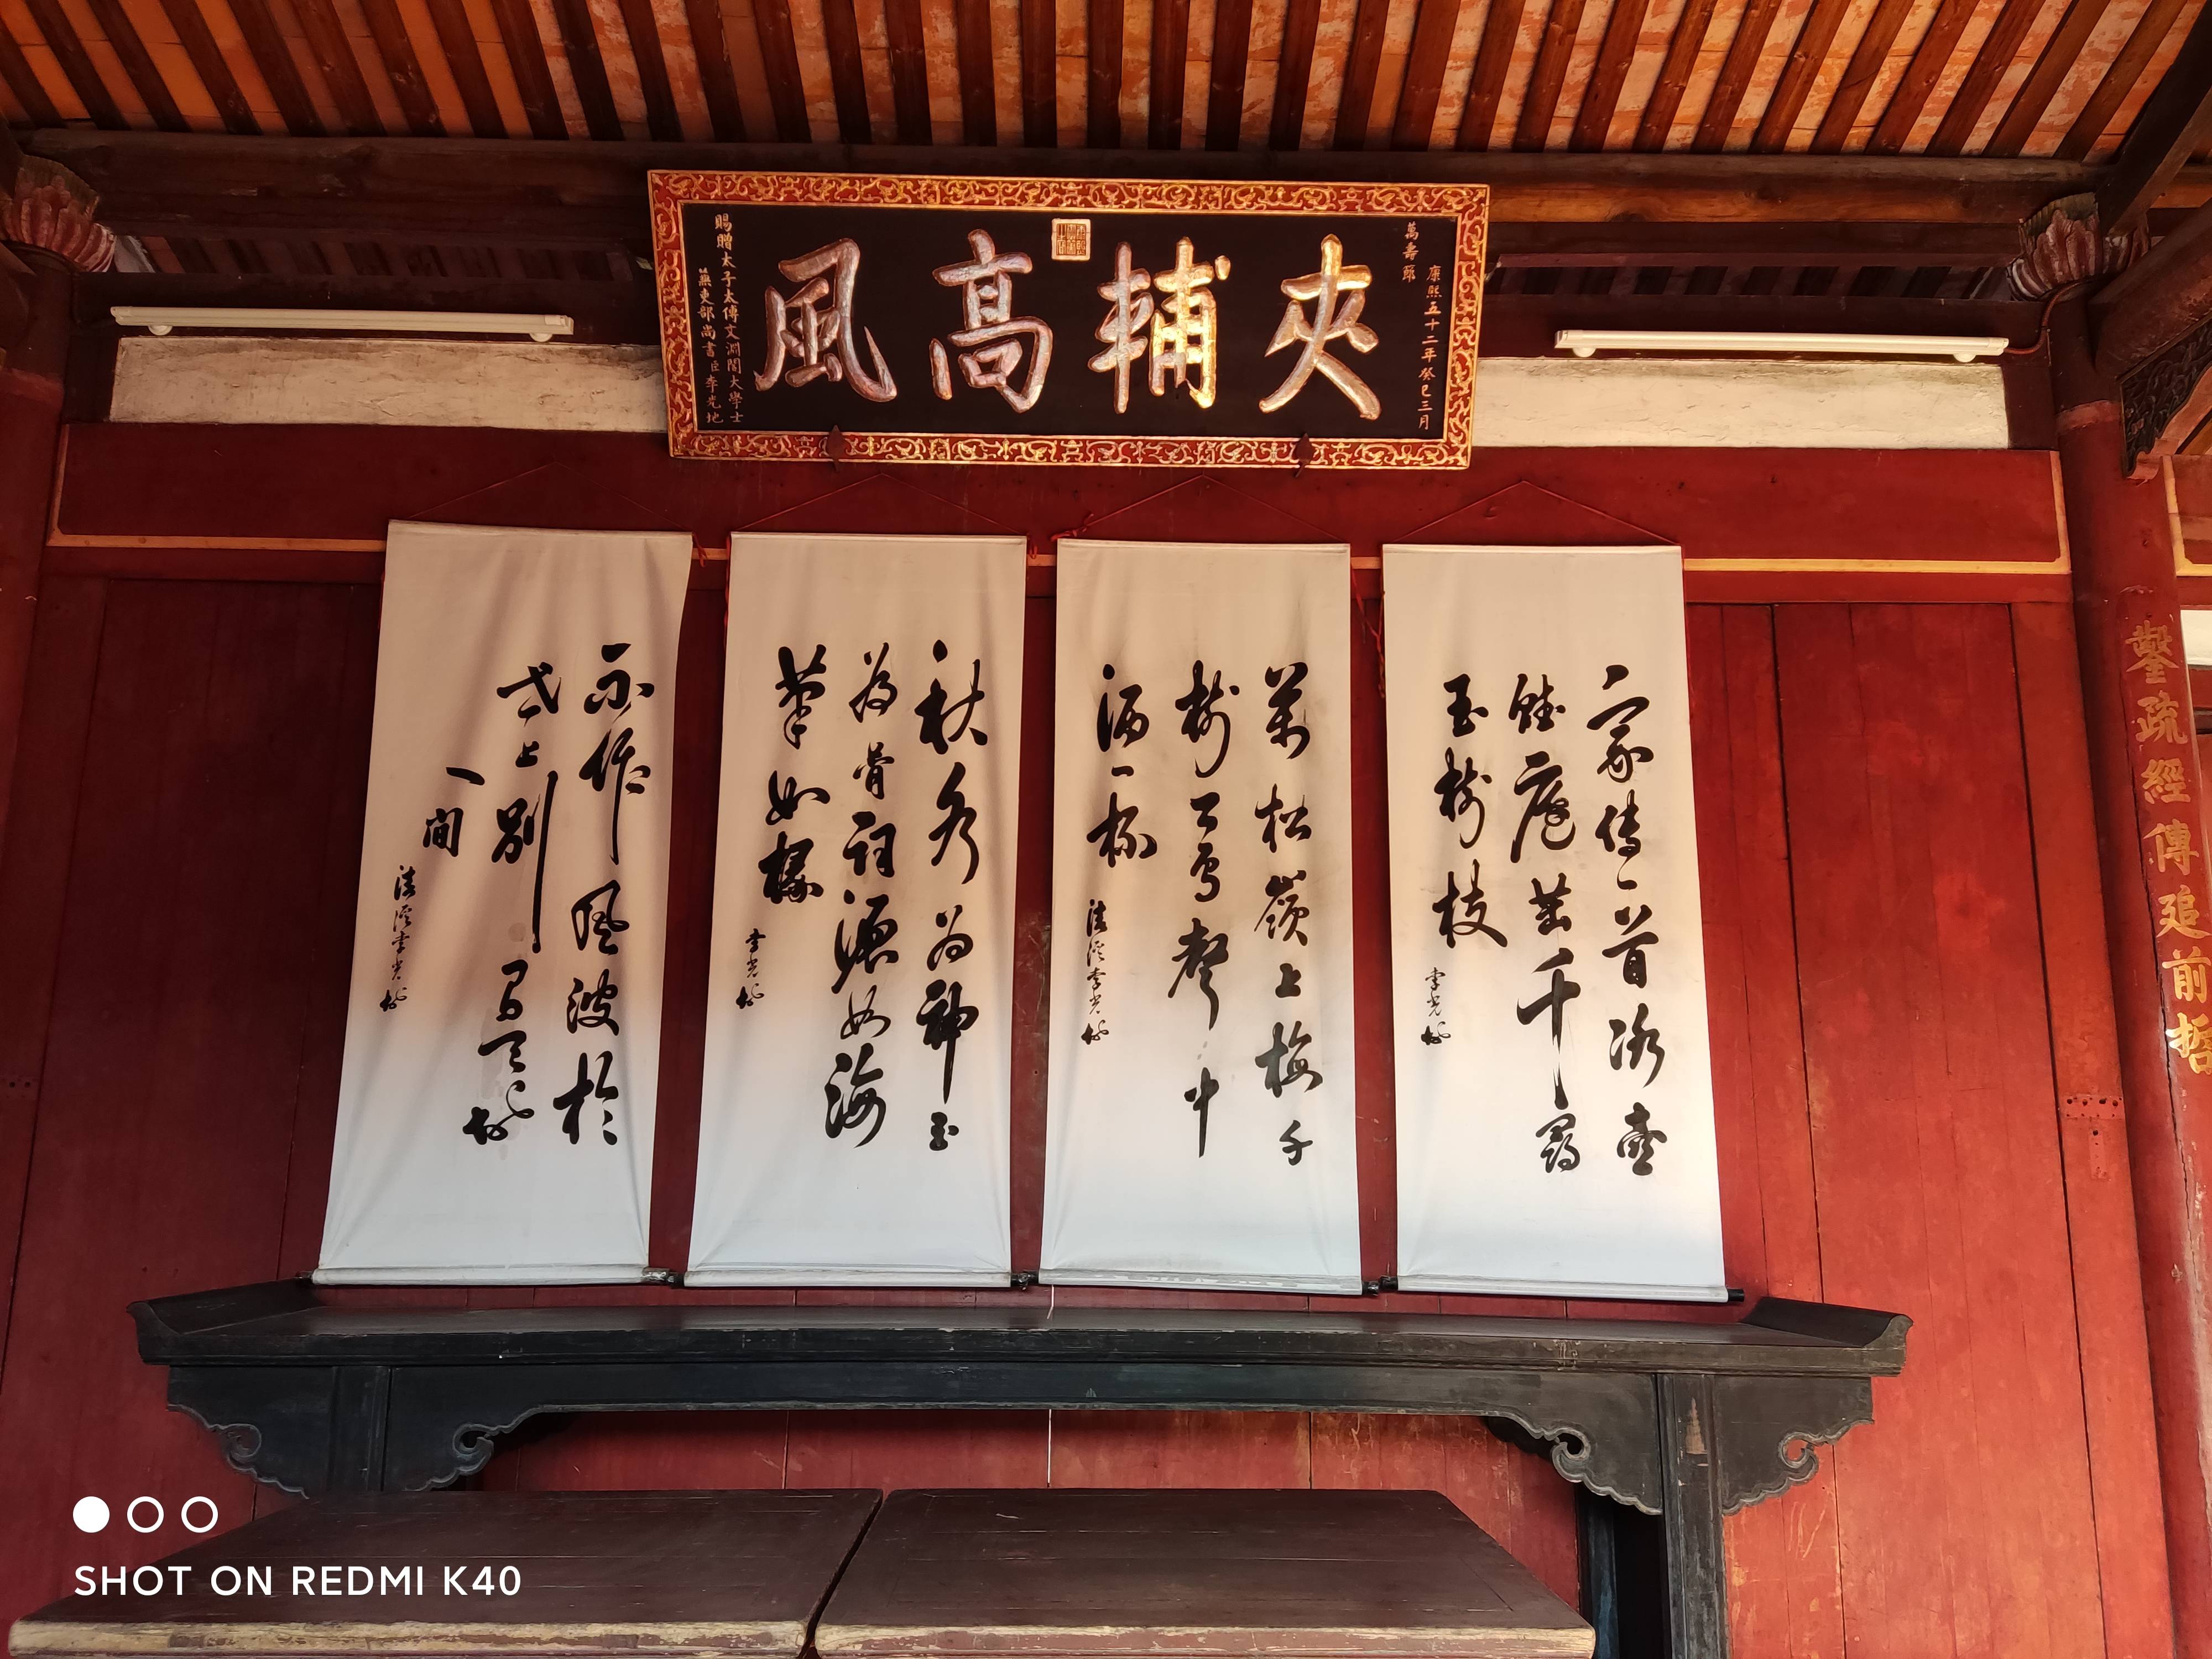 萬壽節
康熙五十二年癸巳三月
夾輔高風
賜贈太子太傅文淵閣大學士
兼吏部尚書臣李光地
鑿疏經傳追前哲
家傳一首冰壺
賦庭茁千尋
玉樹枝
李光地
萬松嶺上梅千
樹百鳥聲中
酒一杯
清溪李光地
秋水為神玉
為骨詞源如海
筆如椽
李光地
不作風波於
世上別有天地
一間
清溪李光地
SHOT ON REDMI K40